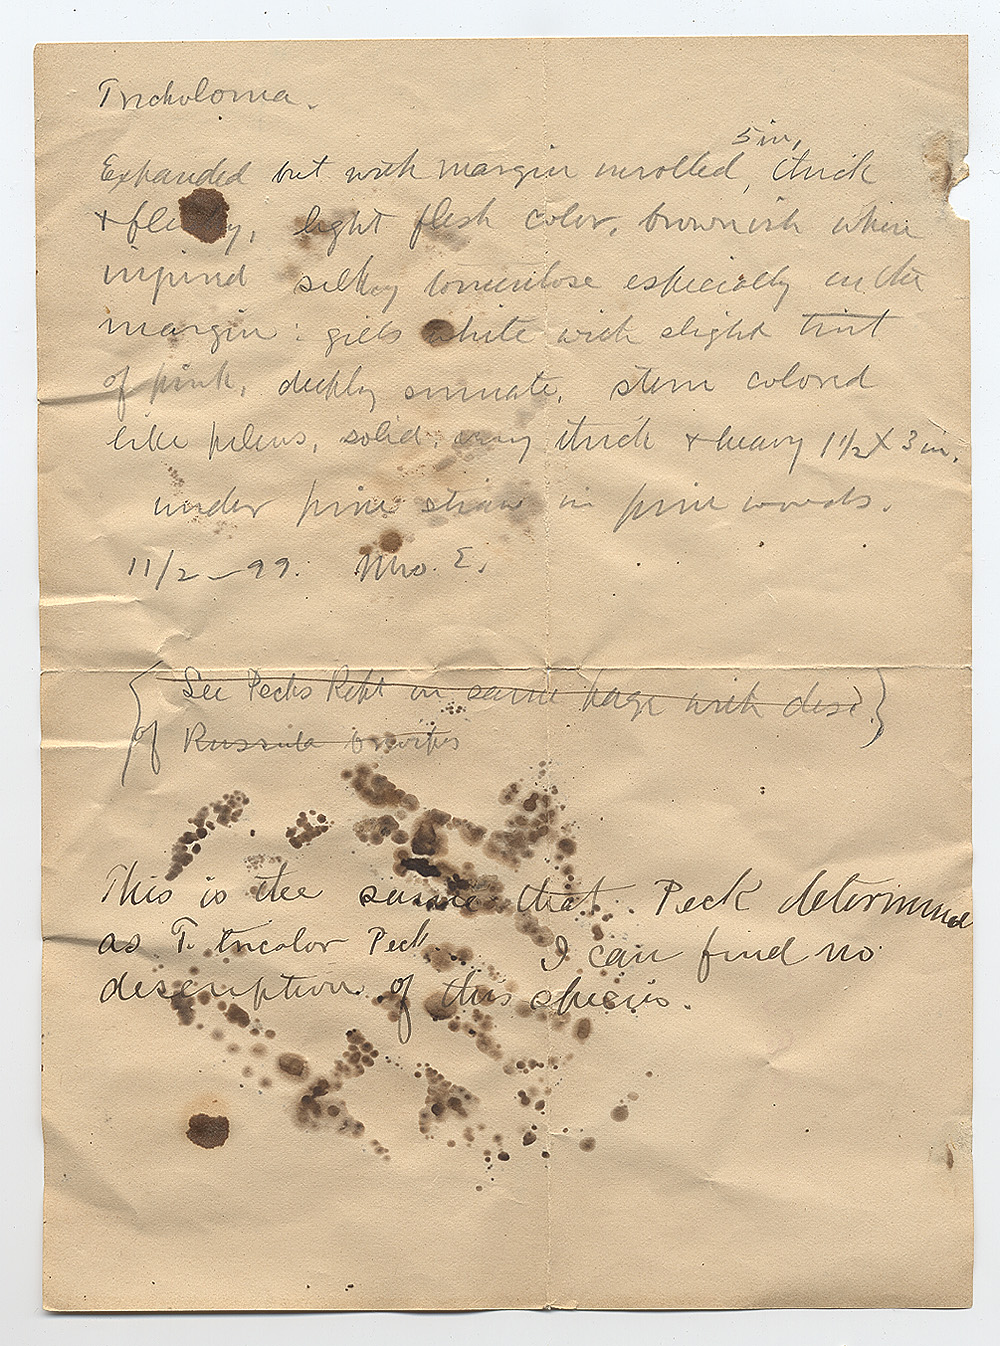 Tricholoma.
5 in,
Expanded but with margin inrolled, thick
+ fleshy, light flesh color, brownish where
injured silky tomentose especially on the
margin: gills white with slight tint
of pink, deeply sinuate, stem colored
like pileus, solid, very thick + heavy 1 1/2 X 3 in.
under pine straw in pine woods.
11/2 - 99. E.
See Pecks Rept on same page with desc.
of Russula brevipes
This is the same that Peck determined
as T. tricolor Peck. I can find no
description of this species.